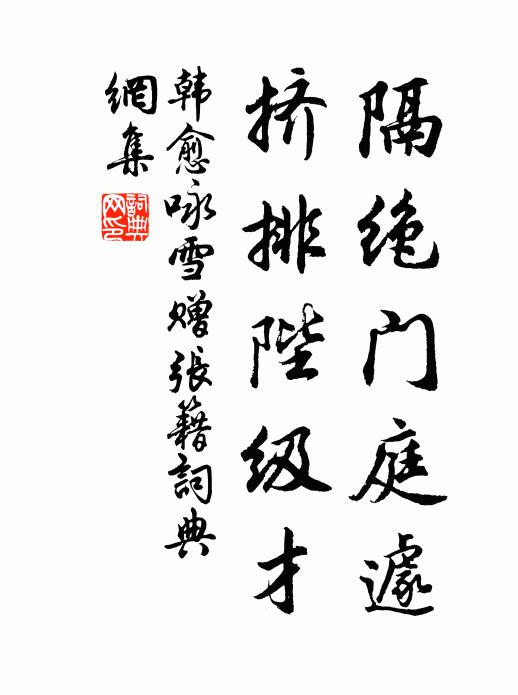 隔绝门庭遽
挤排陛级才
韩愈咏雪赠張籍詞典
網集
詞典
网印